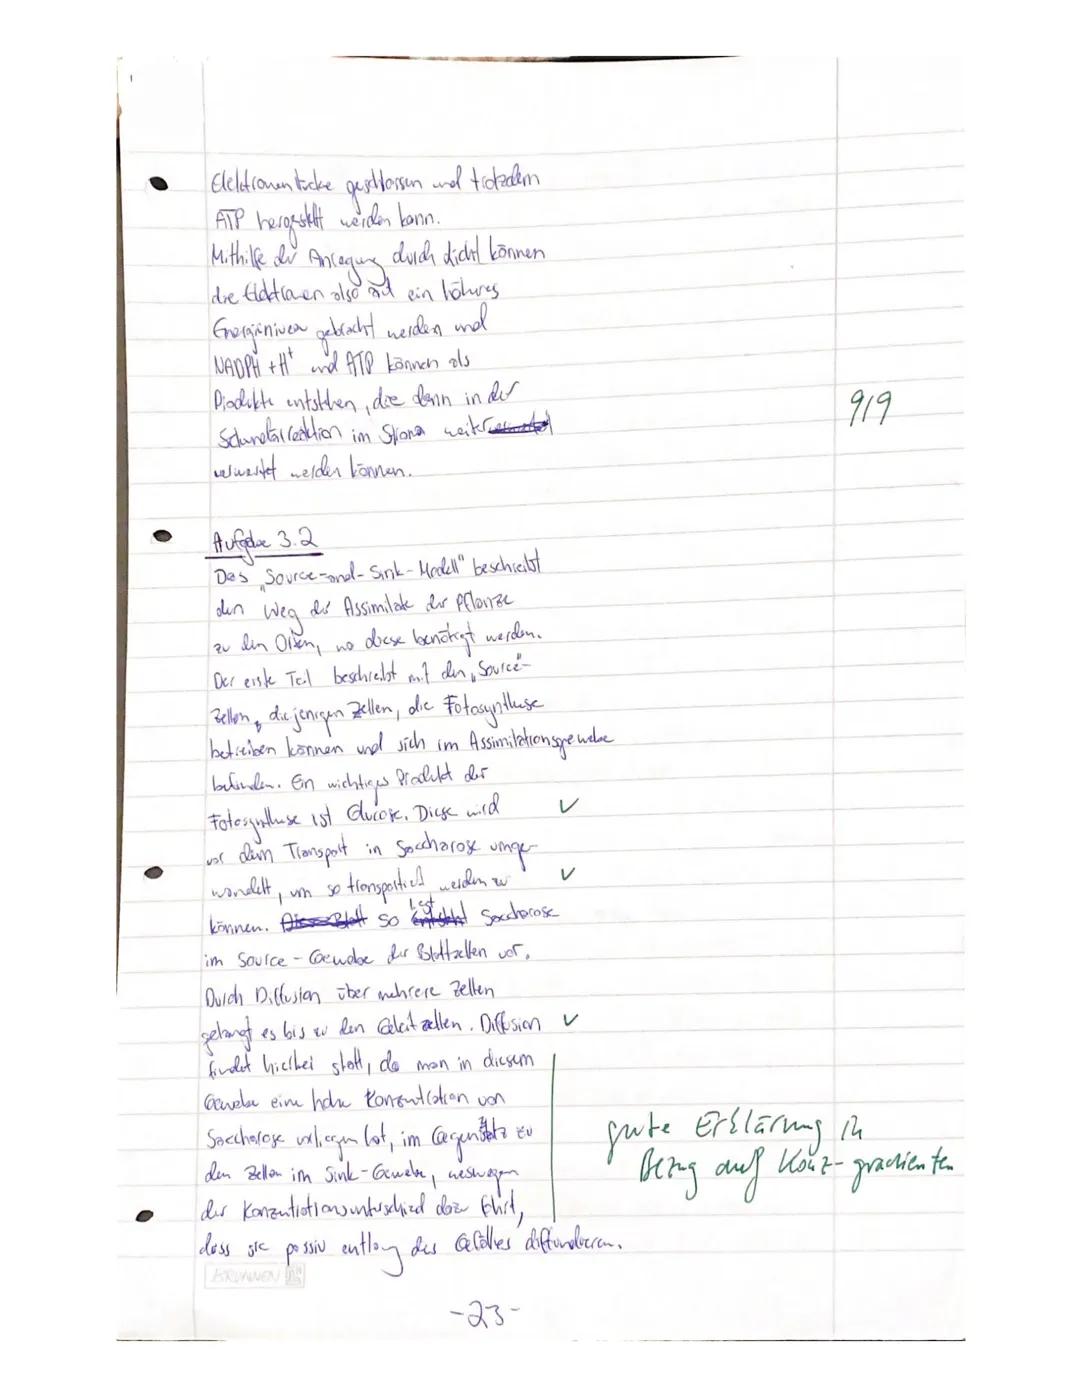 Elektronenlücke geschlossen und trotzdem
ATP hergestellt werden kann.
Mithilfe der Anregung durch Licht können
die Elektronen also auf ein höheres
Energieniveau gebracht werden und
NADPH + H⁺ und ATP können als
Produkte entstehen, die dann in der
Sekundärreaktion im Stroma weiter
verwertet werden können.
9/9
Aufgabe 3.2
Das „Source-and-Sink-Modell" beschreibt
den Weg der Assimilate der Pflanze
zu den Orten, wo diese benötigt werden.
Der erste Teil beschreibt mit den „Source"-
Zellen, diejenigen Zellen, die Fotosynthese
betreiben können und sich im Assimilationsgewebe
befinden. Ein wichtiges Produkt der
Fotosynthese ist Glucose. Diese wird ✓
vor dem Transport in Saccharose umge-
wandelt, um so transportiert werden zu ✓
können. So liegt Saccharose
im Source-Gewebe der Blattzellen vor.
Durch Diffusion über mehrere Zellen
gelangt es bis zu den Geleitzellen. Diffusion ✓
findet hierbei statt, da man in diesem
Gewebe eine hohe Konzentration von
Saccharose vorliegen hat, im Gegensatz zu
den Zellen im Sink-Gewebe, weswegen
der Konzentrationsunterschied dazu führt,
dass sie passiv entlang des Gefälles diffundieren.
gute Erklärung in
Bezug auf Konz-gradienten
BRUNNEN
-23-